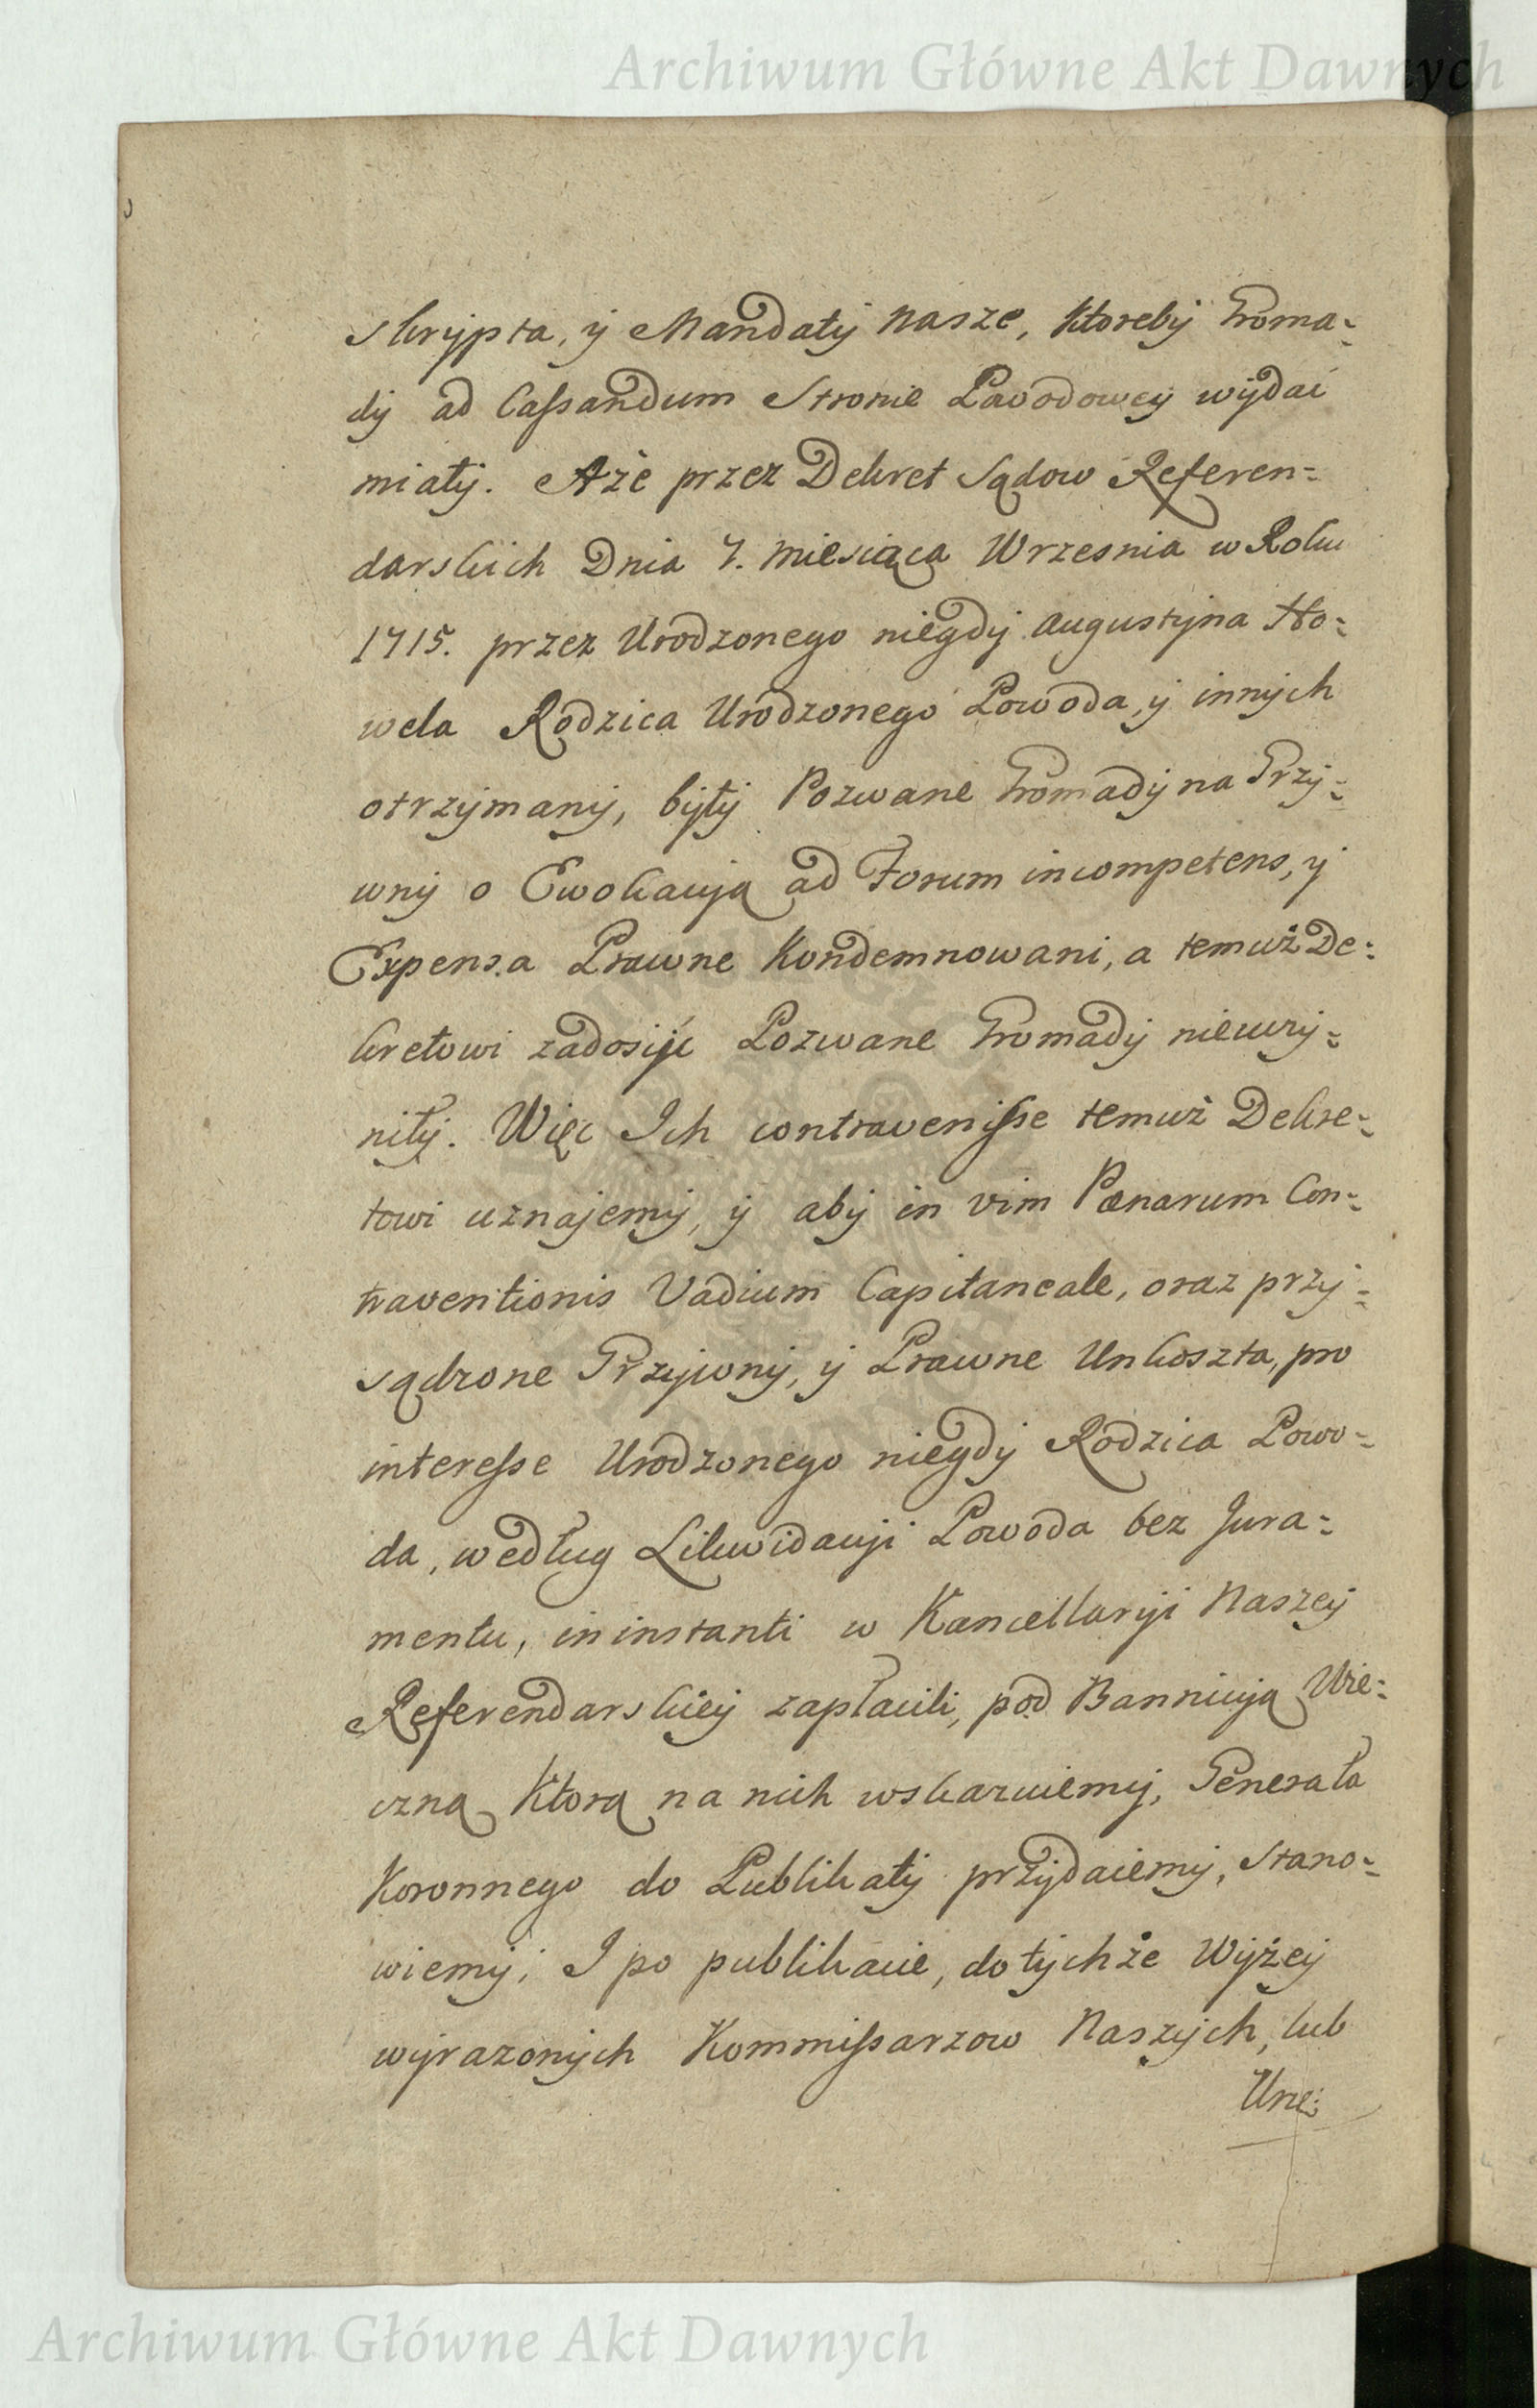 Archiwum Główne Akt Dawnych
skrypta, ÿ Mandatÿ nasze, ktorebÿ Groma-
dÿ ad Cassandum Stronie Powodowey wÿdać
miałÿ. Aże przez Dekret Sądow Referen-
darskich Dnia 7. Miesiąca Wrzesnia w Roku
1715. przez Urodzonego niegdÿ Augustÿna Ho-
wela Rodzica Urodzonego Powoda, ÿ innÿch
otrzÿmanÿ, bÿłÿ Pozwane Gromadÿ na Grzÿ-
wnÿ o Ewokacÿą ad Forum incompetens, ÿ
Expensa Prawne Kondemnowani, a temuż De-
kretowi zadosÿć Pozwane Gromadÿ nieuczÿ-
niłÿ. Więc Ich contravenisse temuż Dekre-
towi uznajemÿ, ÿ abÿ in vim Pœnarum Con-
traventionis Vadium Capitaneale, oraz przÿ-
sądzone Grzÿwnÿ, ÿ Prawne Unkoszta, pro
interesse Urodzonego niegdÿ Rodzica Powo-
da, według Likwidacÿi Powoda bez Jura-
mentu, in instanti w Kancellarÿi Naszeÿ
Referendarskieÿ zapłacili, pod Bannicÿą Wie-
czną Ktorą na nich wskazuiemÿ, Generała
Koronnego do Publikatÿ przÿdaiemÿ, Stano-
wiemÿ; I po publikacie, do tÿchże Wÿżeÿ
wÿrazonÿch Kommissarzow Naszÿch, lub
Urzę-
Archiwum Główne Akt Dawnych